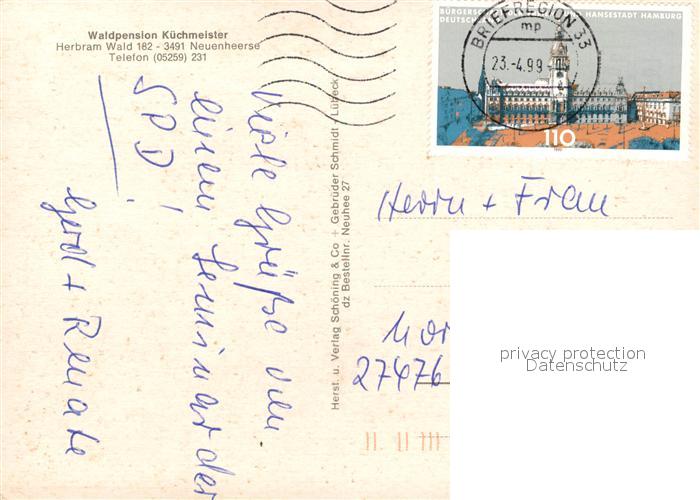 Waldpension Küchmeister
Herbram Wald 182 - 3491 Neuenheerse
Telefon (05259) 231
Viele Grüße von
einem Seminar der
SPD!
Gerd + Renate
Herst. u. Verlag Schöning & Co + Gebrüder Schmidt Lübeck
dz Bestellnr. Neuhee 27
BRIEFREGION 33
mp
23.-4.99
HANSESTADT HAMBURG
110
Herrn + Frau
27476
privacy protection
Datenschutz